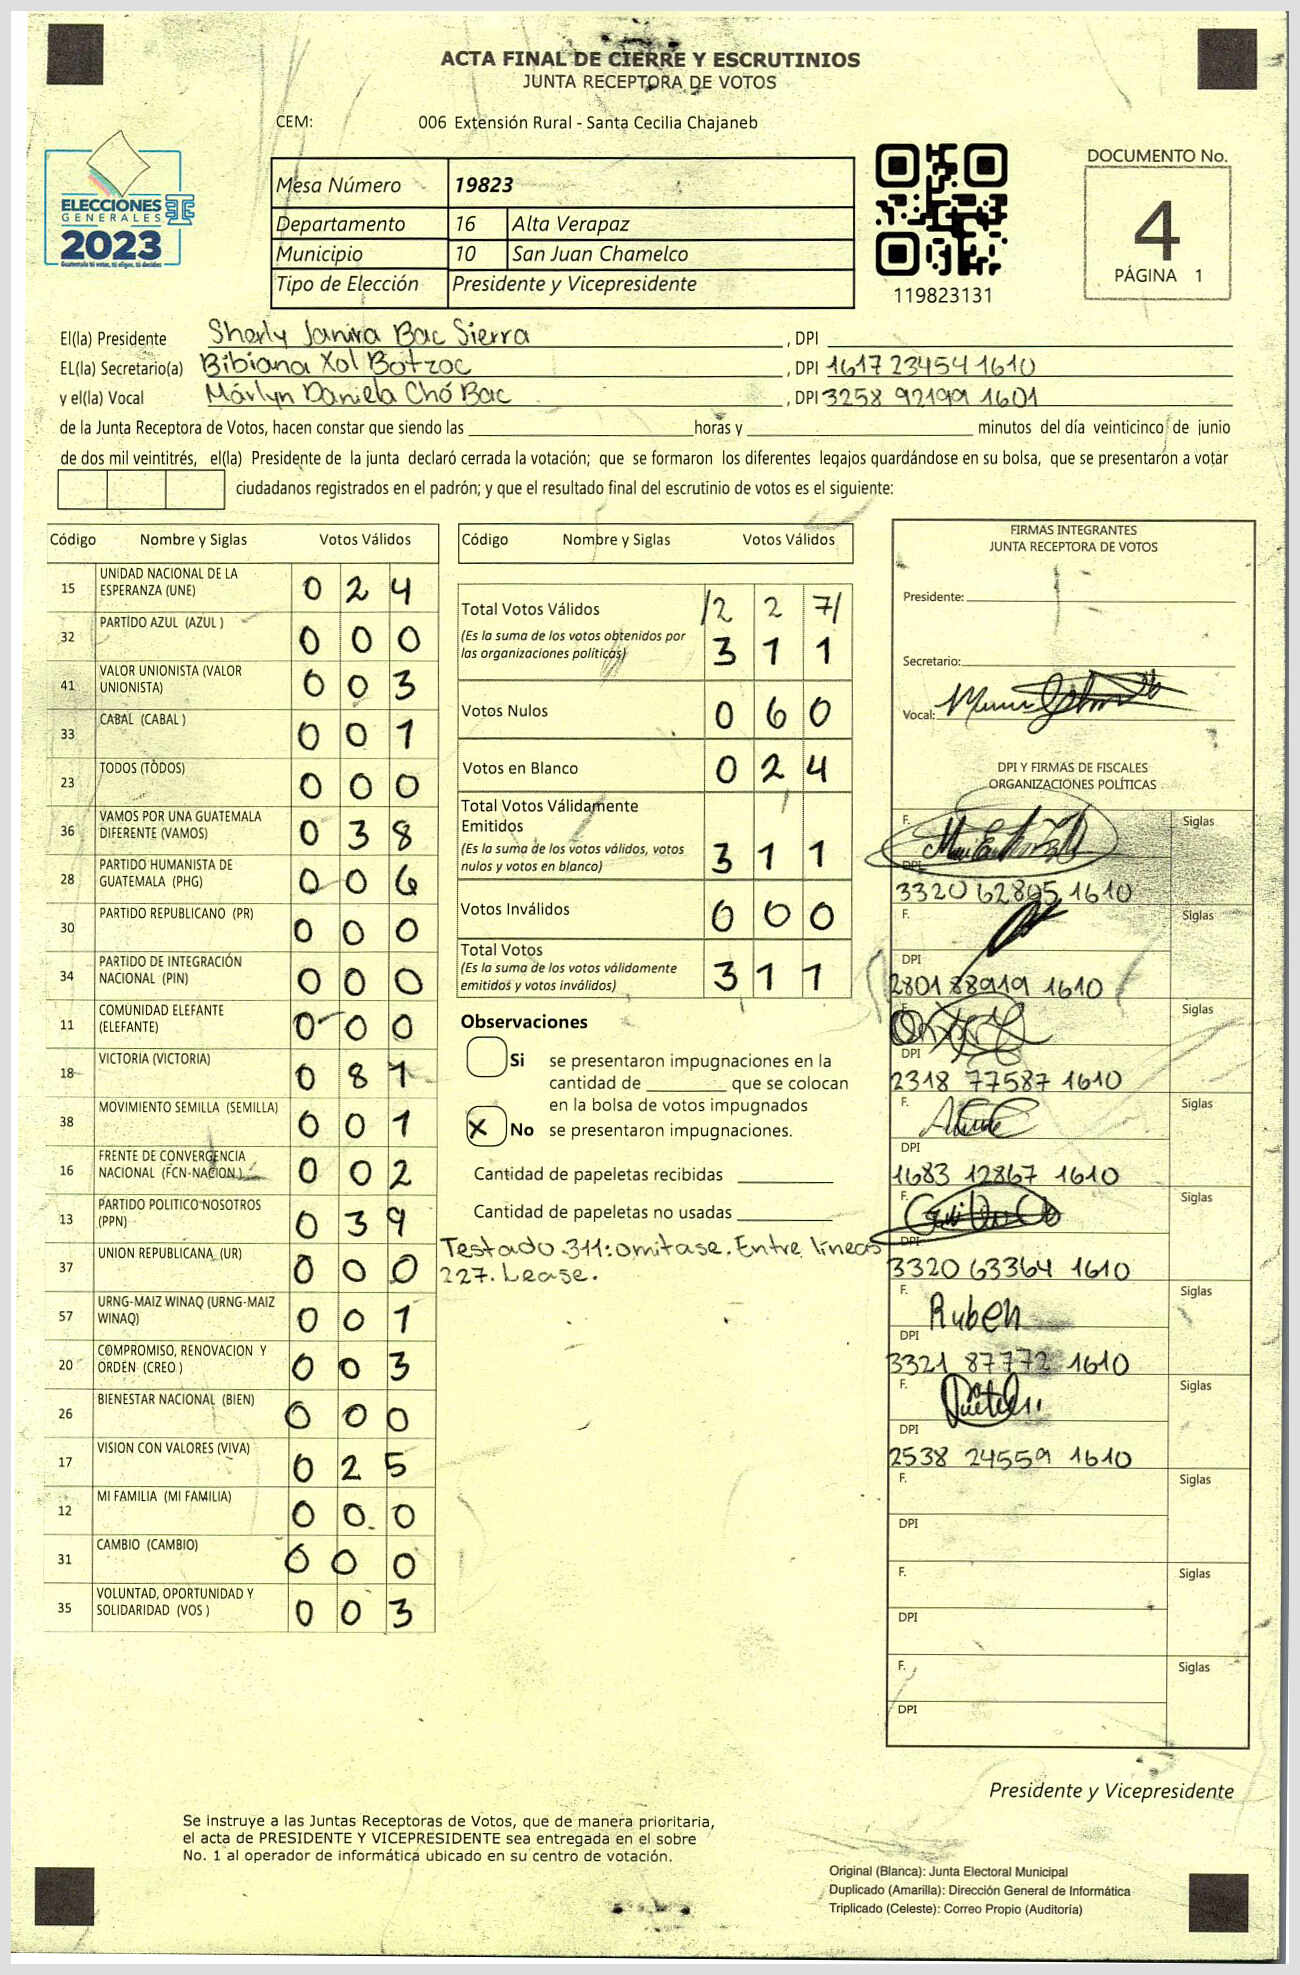 ACTA FINAL DE CIERRE Y ESCRUTINIOS
JUNTA RECEPTORA DE VOTOS
CEM: 006 Extensión Rural - Santa Cecilia Chajaneb
ELECCIONES
GENERALES
2023
Guatemala tú votas, tú eliges, tú decides
Mesa Número 19823
Departamento 16 Alta Verapaz
Municipio 10 San Juan Chamelco
Tipo de Elección Presidente y Vicepresidente
119823131
DOCUMENTO No.
4
PÁGINA 1
El(la) Presidente Sherly Janira Bac Sierra , DPI
EL(la) Secretario(a) Bibiana Xol Botzoc , DPI 1617 23454 1610
y el(la) Vocal Márlyn Daniela Chó Bac , DPI 3258 92199 1601
de la Junta Receptora de Votos, hacen constar que siendo las ____ horas y ____ minutos del día veinticinco de junio
de dos mil veintitrés, el(la) Presidente de la junta declaró cerrada la votación; que se formaron los diferentes legajos guardándose en su bolsa, que se presentaron a votar
ciudadanos registrados en el padrón; y que el resultado final del escrutinio de votos es el siguiente:
Código Nombre y Siglas Votos Válidos
15 UNIDAD NACIONAL DE LA ESPERANZA (UNE) 0 2 4
32 PARTIDO AZUL (AZUL ) 0 0 0
41 VALOR UNIONISTA (VALOR UNIONISTA) 0 0 3
33 CABAL (CABAL ) 0 0 1
23 TODOS (TODOS) 0 0 0
36 VAMOS POR UNA GUATEMALA DIFERENTE (VAMOS) 0 3 8
28 PARTIDO HUMANISTA DE GUATEMALA (PHG) 0 0 6
30 PARTIDO REPUBLICANO (PR) 0 0 0
34 PARTIDO DE INTEGRACIÓN NACIONAL (PIN) 0 0 0
11 COMUNIDAD ELEFANTE (ELEFANTE) 0 0 0
18 VICTORIA (VICTORIA) 0 8 1
38 MOVIMIENTO SEMILLA (SEMILLA) 0 0 1
16 FRENTE DE CONVERGENCIA NACIONAL (FCN-NACION ) 0 0 2
13 PARTIDO POLITICO NOSOTROS (PPN) 0 3 9
37 UNION REPUBLICANA (UR) 0 0 0
57 URNG-MAIZ WINAQ (URNG-MAIZ WINAQ) 0 0 1
20 COMPROMISO, RENOVACION Y ORDEN (CREO ) 0 0 3
26 BIENESTAR NACIONAL (BIEN) 0 0 0
17 VISION CON VALORES (VIVA) 0 2 5
12 MI FAMILIA (MI FAMILIA) 0 0 0
31 CAMBIO (CAMBIO) 0 0 0
35 VOLUNTAD, OPORTUNIDAD Y SOLIDARIDAD (VOS ) 0 0 3
Código Nombre y Siglas Votos Válidos
Total Votos Válidos /2 2 7/
(Es la suma de los votos obtenidos por las organizaciones políticas) 3 1 1
Votos Nulos 0 6 0
Votos en Blanco 0 2 4
Total Votos Válidamente Emitidos
(Es la suma de los votos válidos, votos nulos y votos en blanco) 3 1 1
Votos Inválidos 0 0 0
Total Votos
(Es la suma de los votos válidamente emitidos y votos inválidos) 3 1 1
Observaciones
Si se presentaron impugnaciones en la
cantidad de ____ que se colocan
en la bolsa de votos impugnados
X No se presentaron impugnaciones.
Cantidad de papeletas recibidas
Cantidad de papeletas no usadas
Testado.311:omitase. Entre líneas
227. Lease.
FIRMAS INTEGRANTES
JUNTA RECEPTORA DE VOTOS
Presidente:
Secretario:
Vocal:
DPI Y FIRMAS DE FISCALES
ORGANIZACIONES POLÍTICAS
F. Siglas
DPI
3320 62805 1610
F. Siglas
DPI
2801 88919 1610
F. Siglas
DPI
2318 77587 1610
F. Siglas
DPI
1683 12867 1610
F. Siglas
DPI
3320 63364 1610
F. Ruben Siglas
DPI
3321 87772 1610
F. Siglas
DPI
2538 24559 1610
F. Siglas
DPI
F. Siglas
DPI
F. Siglas
DPI
Presidente y Vicepresidente
Se instruye a las Juntas Receptoras de Votos, que de manera prioritaria,
el acta de PRESIDENTE Y VICEPRESIDENTE sea entregada en el sobre
No. 1 al operador de informática ubicado en su centro de votación.
Original (Blanca): Junta Electoral Municipal
Duplicado (Amarilla): Dirección General de Informática
Triplicado (Celeste): Correo Propio (Auditoría)